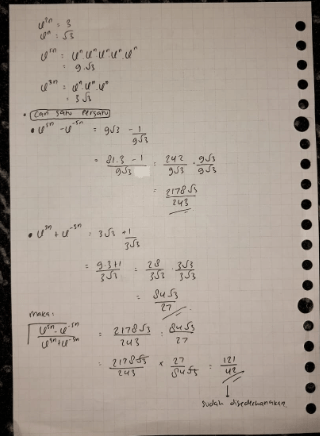 U²ⁿ = 3
Uⁿ = √3
U⁵ⁿ = Uⁿ Uⁿ Uⁿ Uⁿ Uⁿ
= 9√3
U³ⁿ = Uⁿ Uⁿ Uⁿ
= 3√3
• Cari satu persatu
• U⁵ⁿ - U⁻⁵ⁿ = 9√3 - 1/9√3
= 81.3 - 1 / 9√3 = 242/9√3 . 9√3/9√3
= 2178√3/243
• U³ⁿ + U⁻³ⁿ = 3√3 + 1/3√3
= 9.3+1/3√3 = 28/3√3 . 3√3/3√3
= 84√3/27
maka:
U⁵ⁿ - U⁻⁵ⁿ / U³ⁿ + U⁻³ⁿ = 2178√3/243 : 84√3/27
= 2178√3/243 × 27/84√3 = 121/42
sudah disederhanakan